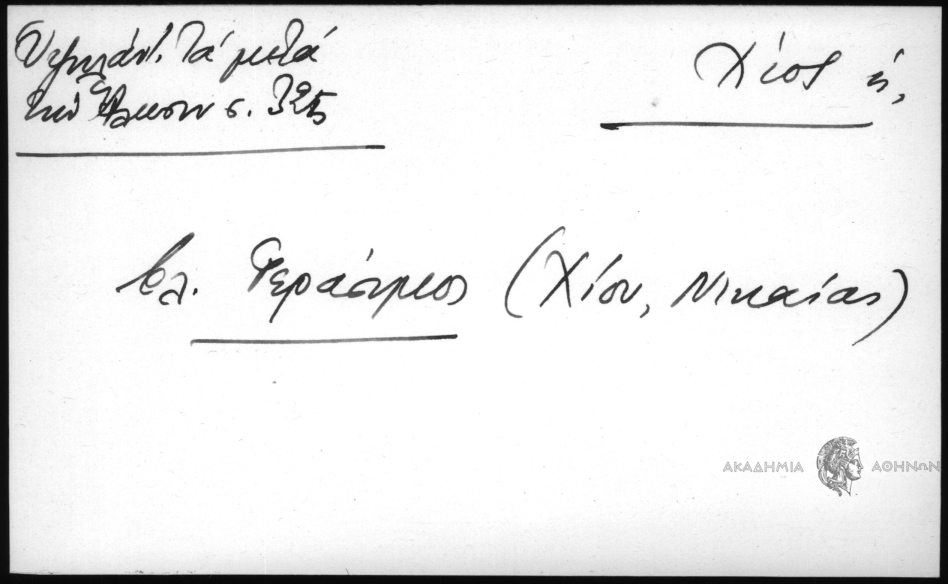 Ὑψηλάντ. Τά μετά
τήν Ἅλωσιν σ. 325
Χίος ἡ,
βλ. Γεράσιμος (Χίου, Νικαίας)
ΑΚΑΔΗΜΙΑ ΑΘΗΝΩΝ